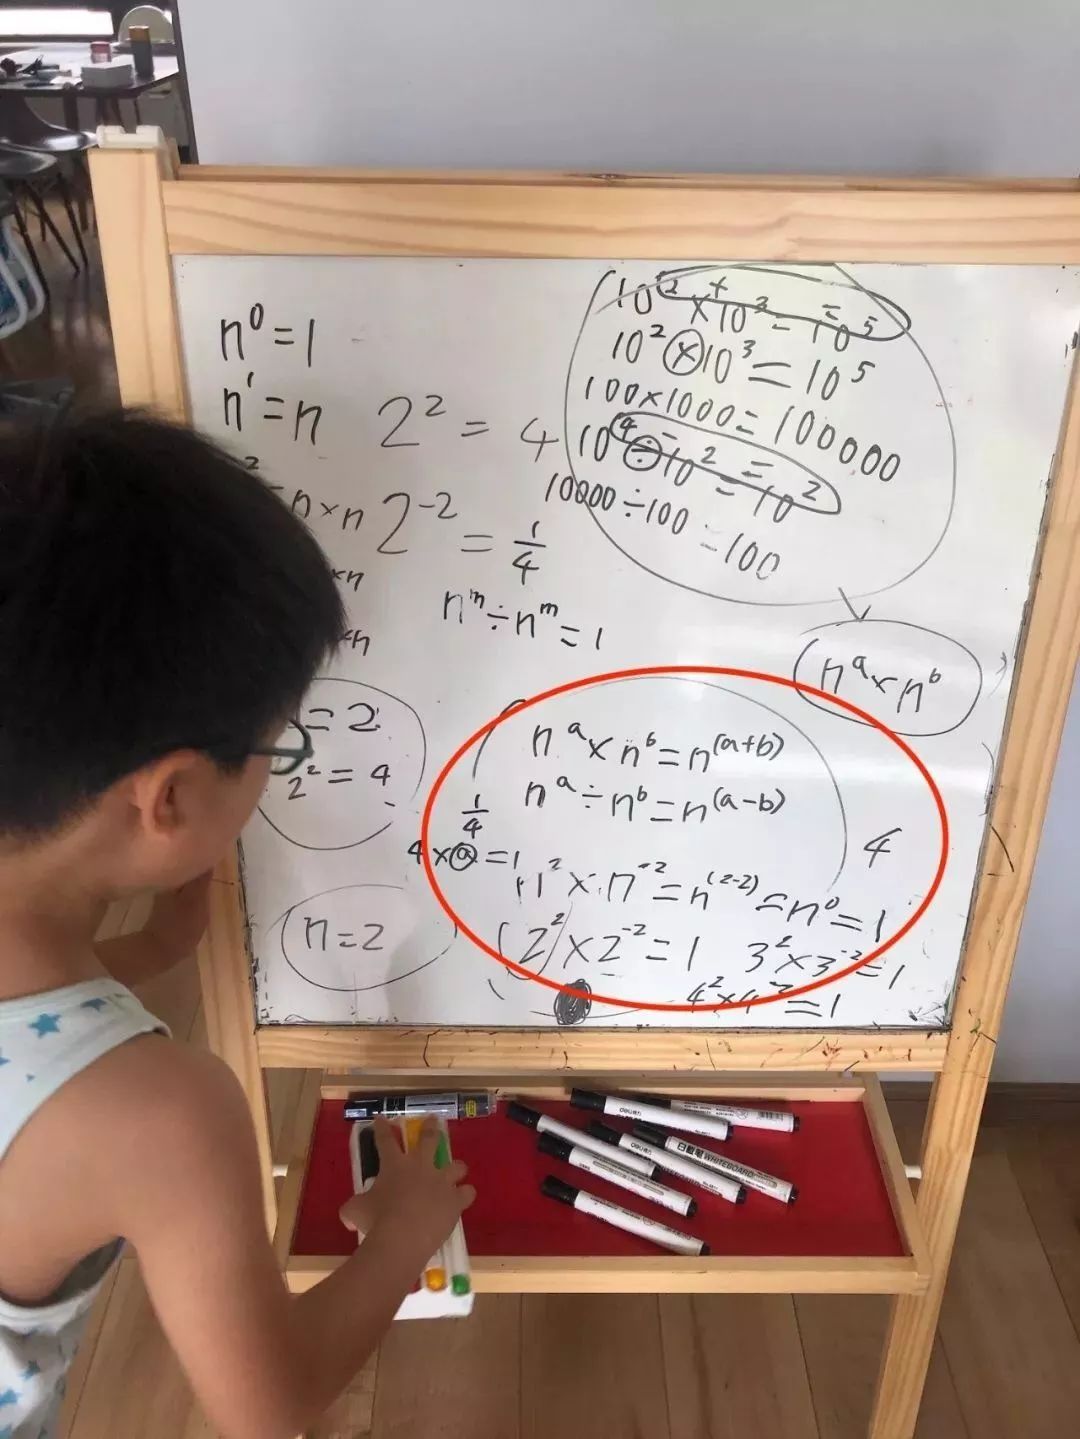 n⁰=1
n¹=n
2² = 4
n×n
2⁻² = 1/4
×n
×n
nᵐ÷nᵐ=1
= 2
2² = 4
n=2
10² × 10³ = 10⁵
+ =
10² × 10³ = 10⁵
100×1000=100000
10⁴ ÷ 10² = 10²
- =
10000÷100=100
nᵃ×nᵇ
nᵃ×nᵇ=n⁽ᵃ⁺ᵇ⁾
nᵃ÷nᵇ=n⁽ᵃ⁻ᵇ⁾
1/4
4×a=1
4
n²×n⁻²=n⁽²⁻²⁾=n⁰=1
2²×2⁻²=1
3²×3⁻²=1
4²×4⁻²=1
deli得力
deli得力
白板笔 WHITEBOARD